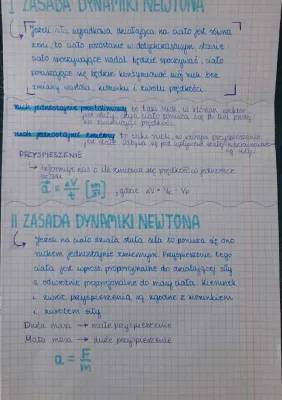 I ZASADA DYNAMIKI NEWTONA
Jeżeli siła wypadkowa działająca na ciało jest równa
zero, to ciało pozostanie w dotychczasowym stanie
ciało spoczywające nadal będzie spoczywać, ciało
poruszające się będzie kontynuować swój ruch bez
zmiany wartości, kierunku i zwrotu prędkości.
ruch jednostajnie prostoliniowy to taki ruch, w którym wektor
jest stały,
ruch jednostajnie zmienny to taki ruch, w którym przyspieszenie
jest stałe.
PRZYSPIESZENIE
informuje nas o ile zmienia się prędkość w jednostce
czasu
a = ΔV/t [m/s²], gdzie ΔV = Vk - Vp
II ZASADA DYNAMIKI NEWTONA
Jeżeli na ciało działa stała siła to porusza się ono
ruchem jednostajnie zmiennym. Przyspieszenie tego
ciała jest wprost proporcjonalne do działającej siły
a odwrotnie proporcjonalne do masy ciała. Kierunek
i zwrot przyspieszenia są zgodne z kierunkiem
i zwrotem siły.
Duża masa → małe przyspieszenie
Mała masa → duże przyspieszenie
a = F/m